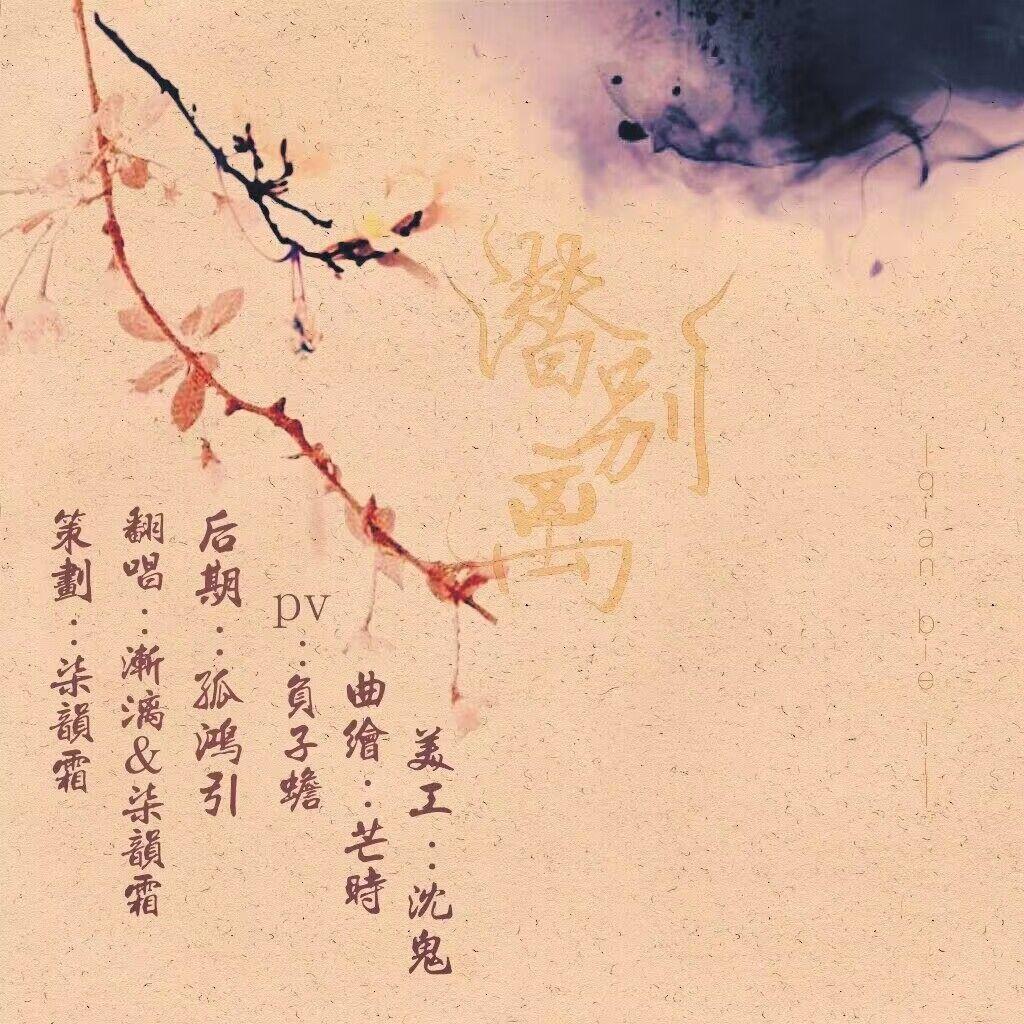 潛別离
策劃：柒韻霜
翻唱：漸漓&柒韻霜
后期：孤鴻引
pv：負子蟾
曲繪：芒時
美工：沈鬼